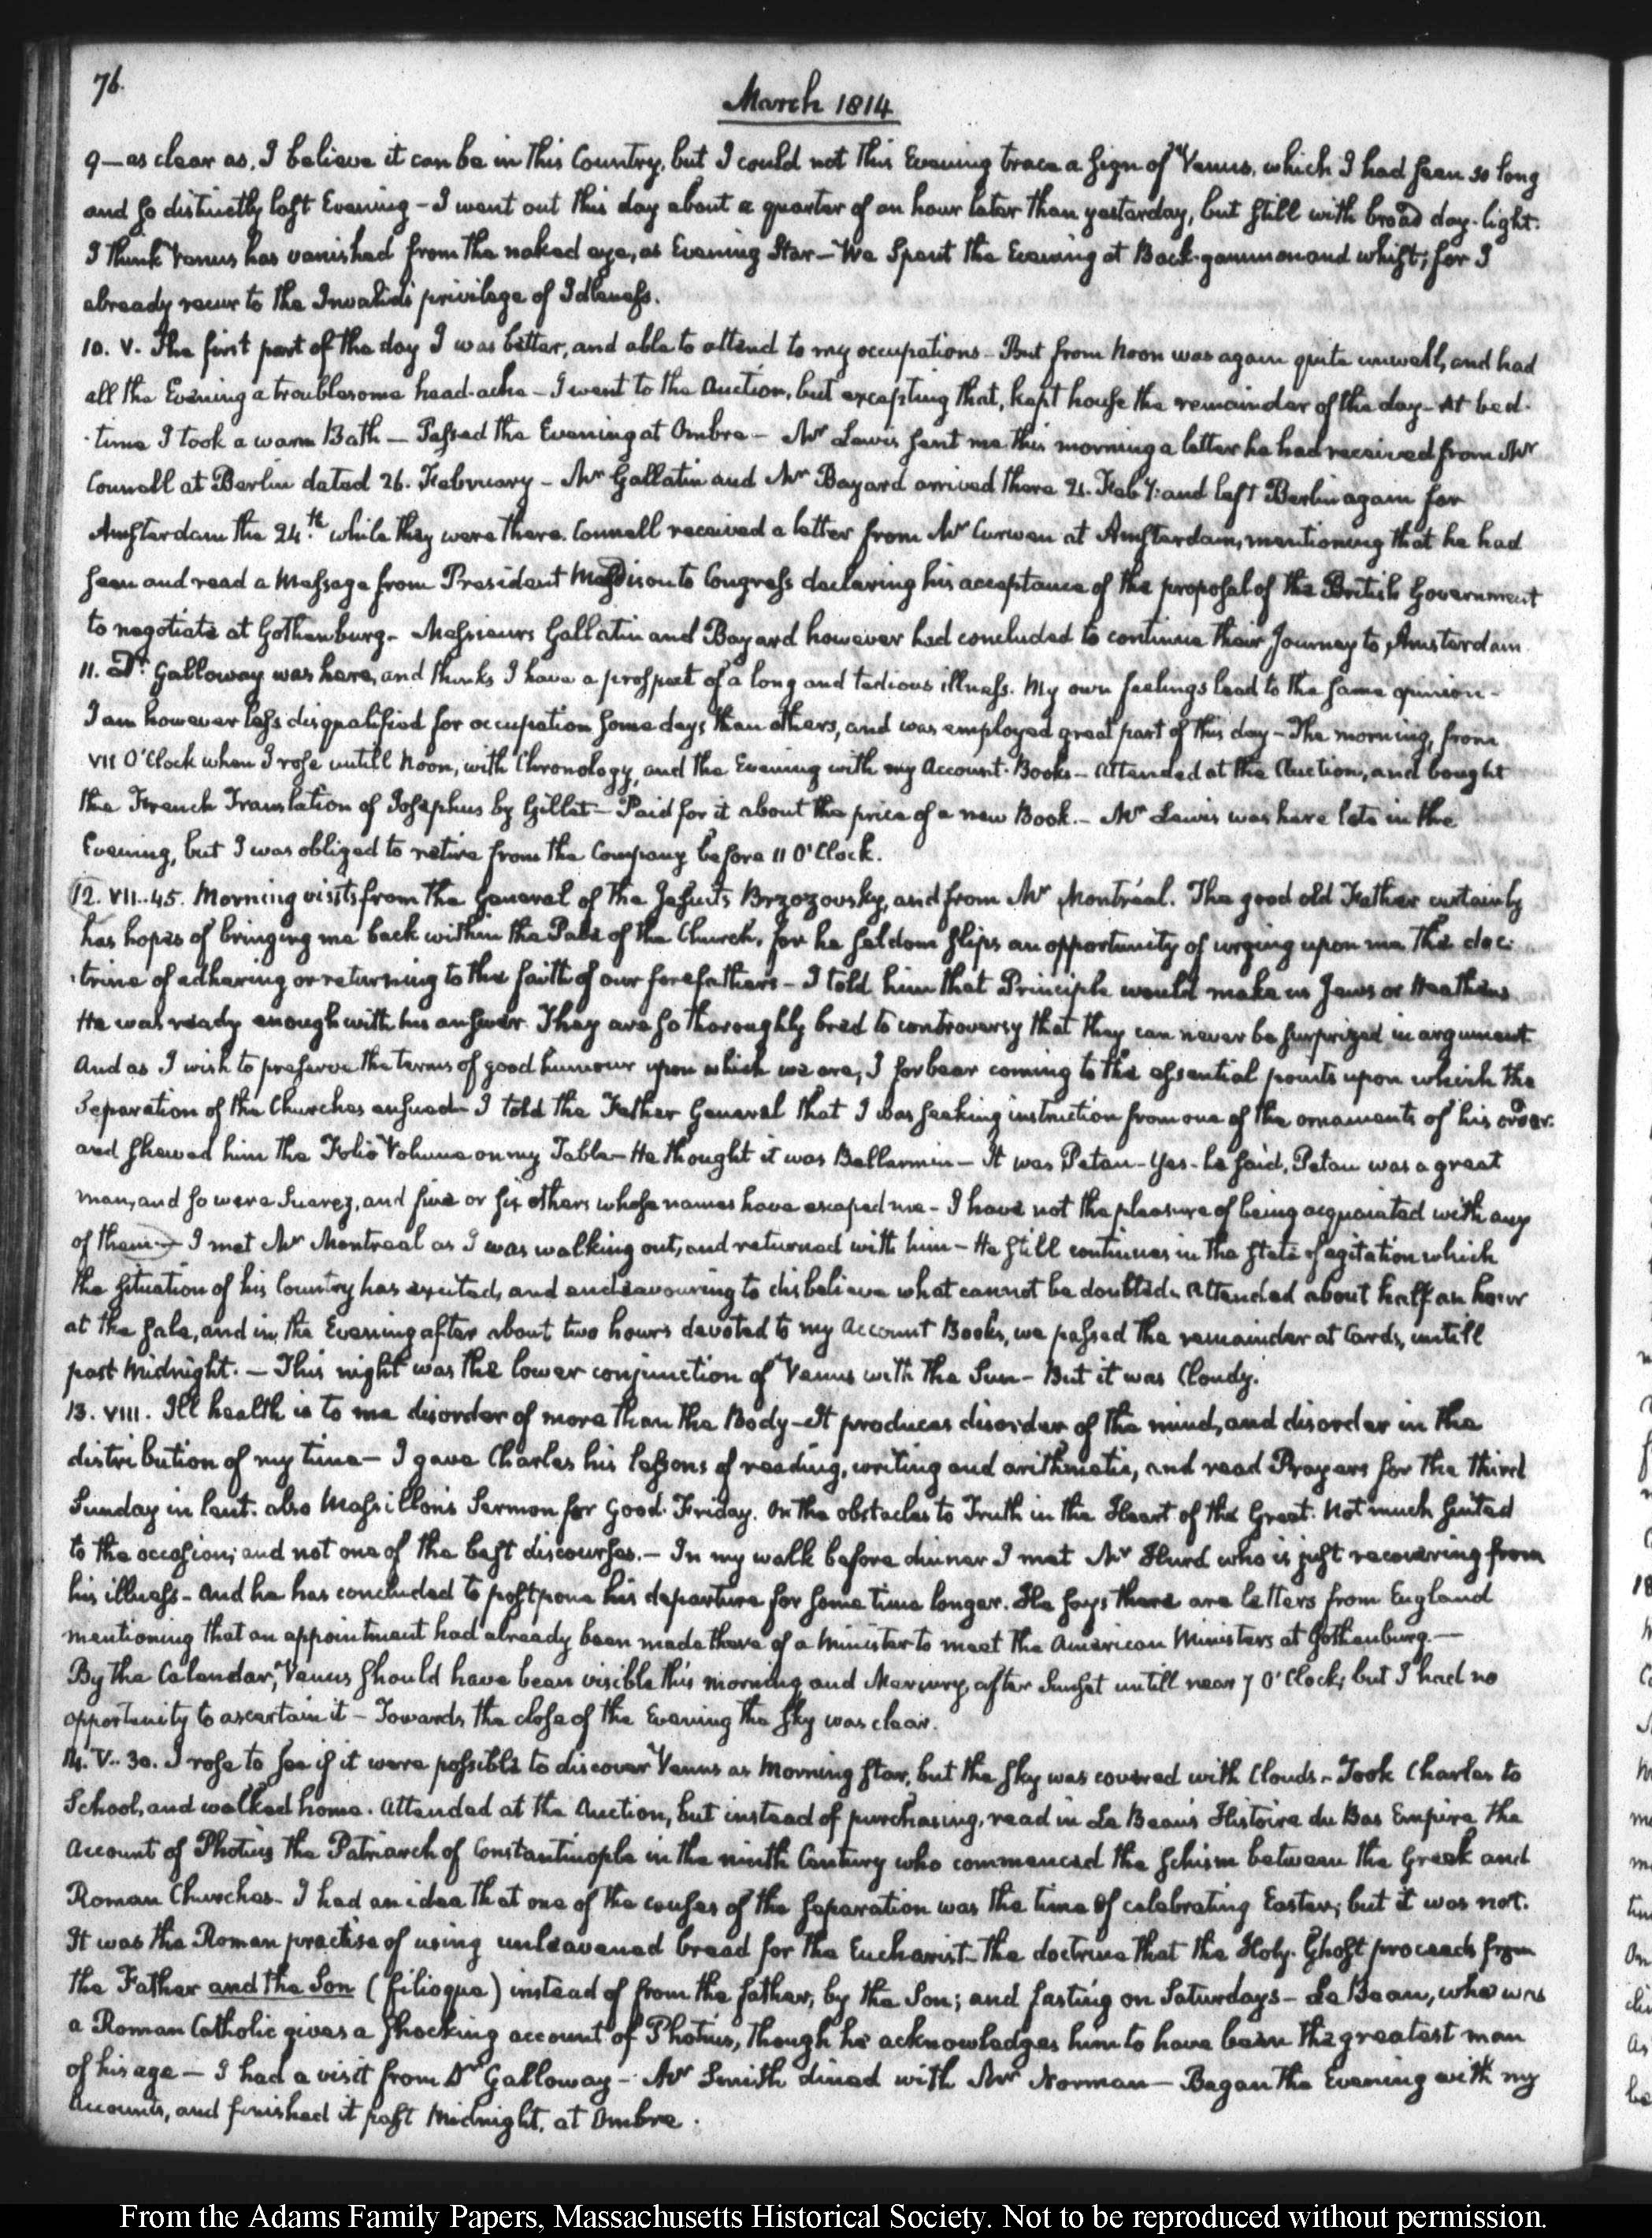 76.
March 1814
9—as clear as, I believe it can be in this Country, but I could not this Evening trace a sign of Venus, which I had seen so long
and so distinctly last Evening – I went out this day about a quarter of an hour later than yesterday, but still with broad day-light.
I think Venus has vanished from the naked eye, as Evening Star – We spent the Evening at Back-gammon and whist; for I
already recur to the Invalid's privilege of Idleness.
10. V. The first part of the day I was better, and able to attend to my occupations – But from Noon was again quite unwell, and had
all the Evening a troublesome head-ache – I went to the Auction, but excepting that, kept house the remainder of the day – At bed-
-time I took a warm Bath – Passed the Evening at Ombre – Mr Lewis sent me this morning a letter he had received from Mr
Connell at Berlin dated 26. February – Mr Gallatin and Mr Bayard arrived there 21. Feby: and left Berlin again for
Amsterdam the 24.th while they were there. Connell received a letter from Mr Curwen at Amsterdam, mentioning that he had
seen and read a Message from President Madison to Congress declaring his acceptance of the proposal of the British Government
to negotiate at Gothenburg – Messieurs Gallatin and Bayard however had concluded to continue their Journey to Amsterdam.
11. Dr. Galloway was here, and thinks I have a prospect of a long and tedious illness. My own feelings lead to the same opinion –
I am however less disqualified for occupation some days than others, and was employed great part of this day – The morning, from
VII O'Clock when I rose untill Noon, with Chronology, and the Evening with my Account-Books – Attended at the Auction, and bought
the French Translation of Josephus by Gillet – Paid for it about the price of a new Book. – Mr Lewis was here late in the
Evening, but I was obliged to retire from the Company before 11 O'Clock.
12. VII..45. Morning visits from the General of the Jesuits Brzozovsky, and from Mr Montréal. The good old Father certainly
has hopes of bringing me back within the Pale of the Church, for he seldom slips an opportunity of urging upon me the doc-
-trine of adhering or returning to the faith of our forefathers – I told him that Principle would make us Jews or Heathens
He was ready enough with his answer. They are so thoroughly bred to controversy that they can never be surprized in argument
And as I wish to preserve the terms of good humour upon which we are, I forbear coming to the essential points upon which the
Separation of the Churches ensued – I told the Father General that I was seeking instruction from one of the ornaments of his order.
and shewed him the Folio Volume on my Table – He thought it was Bellarmin – It was Petau – Yes – he said, Petau was a great
man, and so were Suarez, and five or six others whose names have escaped me – I have not the pleasure of being acquainted with any
of them – I met Mr Montreal as I was walking out, and returned with him – He still continues in the state of agitation which
the situation of his Country has excited, and endeavouring to disbelieve what cannot be doubted. Attended about half an hour
at the sale, and in the Evening after about two hours devoted to my Account Books, we passed the remainder at Cards, untill
past Midnight. – This night was the lower conjunction of Venus with the Sun – But it was Cloudy.
13. VIII. Ill health is to me disorder of more than the Body – It produces disorder of the mind, and disorder in the
distribution of my time – I gave Charles his lessons of reading, writing and arithmetic, and read Prayers for the third
Sunday in lent. also Massillon's Sermon for Good-Friday. On the obstacles to Truth in the Heart of the Great. Not much suited
to the occasion; and not one of the best discourses. – In my walk before dinner I met Mr Hurd who is just recovering from
his illness – and he has concluded to postpone his departure for some time longer. He says there are letters from England
mentioning that an appointment had already been made there of a Minister to meet the American Ministers at Gothenburg. —
By the Calendar, Venus should have been visible this morning and Mercury, after Sunset untill near 7 O'Clock; but I had no
opportunity to ascertain it – Towards the close of the Evening the sky was clear.
14. V..30. I rose to see if it were possible to discover Venus as Morning star, but the sky was covered with Clouds – Took Charles to
School, and walked home. Attended at the Auction, but instead of purchasing, read in Le Beau's Histoire du Bas Empire the
Account of Photius the Patriarch of Constantinople in the ninth Century who commenced the schism between the Greek and
Roman Churches – I had an idea that one of the causes of the separation was the time of celebrating Easter; but it was not.
It was the Roman practise of using unleavened bread for the Eucharist – the doctrine that the Holy-Ghost proceeds from
the Father and the Son (filioque) instead of from the father, by the Son; and fasting on Saturdays – Le Beau, who was
a Roman Catholic gives a shocking account of Photius, though he acknowledges him to have been the greatest man
of his age – I had a visit from Dr Galloway – Mr Smith dined with Mr Norman – Began the Evening with my
Accounts, and finished it past Midnight, at Ombre.
From the Adams Family Papers, Massachusetts Historical Society. Not to be reproduced without permission.